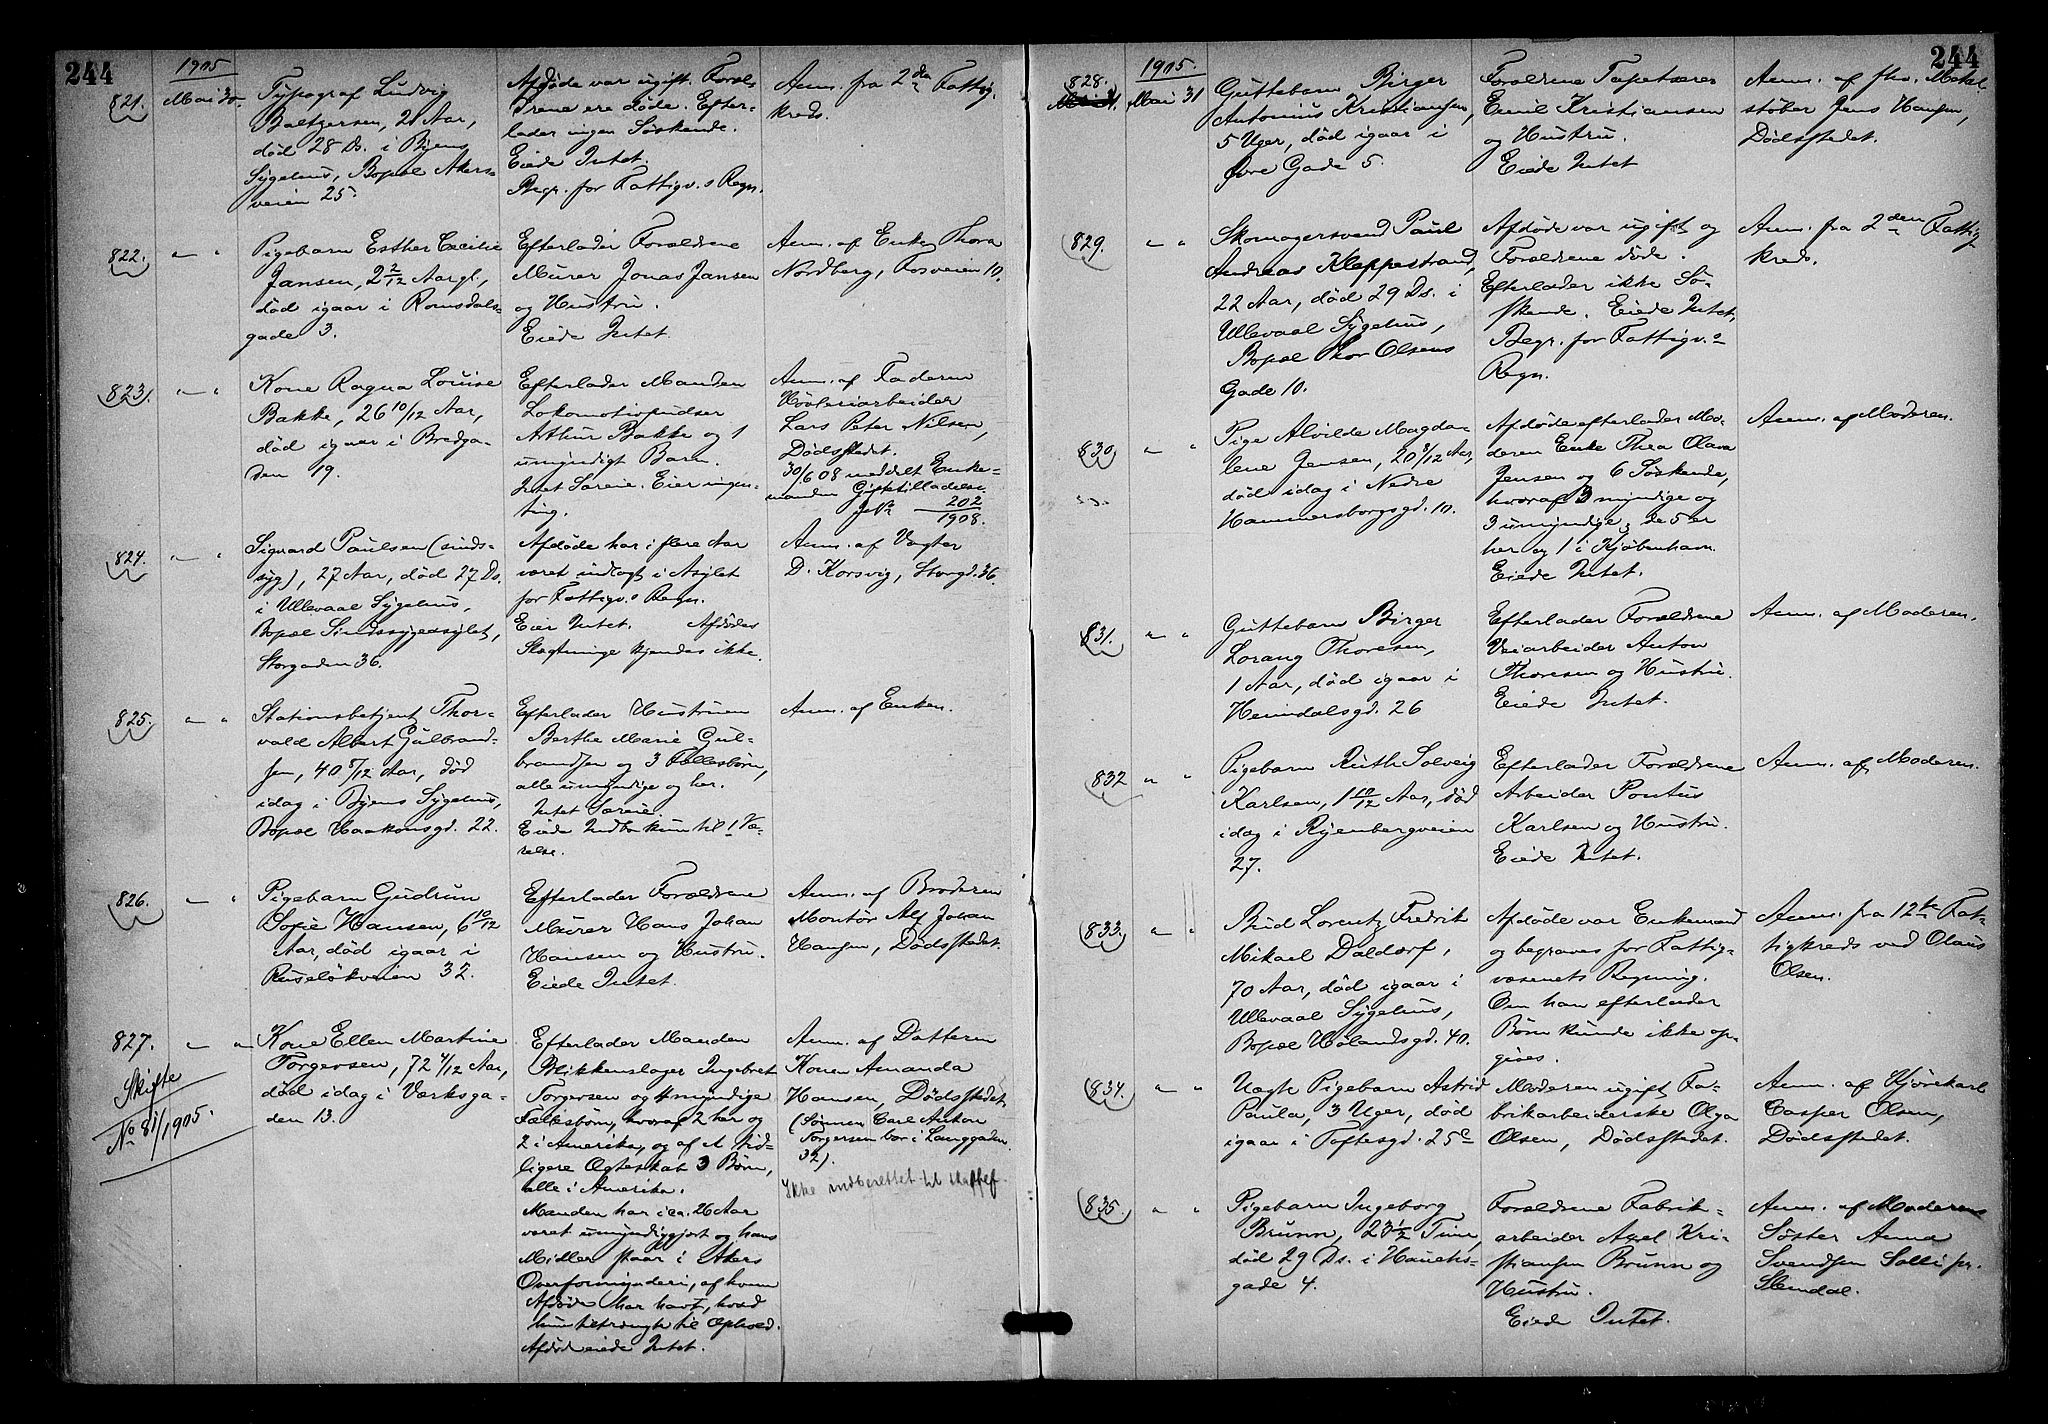 244
1905
821.
Mai 30.
Typograf Ludvig
Baltzersen, 21 Aar,
død 28 Ds. i Byens
Sygehus, Bopæl Akers-
veien 25.
Afdøde var ugift. Foræl-
drene ere døde. Efter-
lader ingen Søskende.
Eiede Intet.
Begr. for Fattigv.s Regn.
Anm. fra 2den Fattig-
kreds.
822.
" "
Pigebarn Esther Cecilie
Jansen, 2 2/12 Aar gl.,
død igaar i Romsdals-
gade 3.
Efterlader Forældrene
Murer Jonas Jansen
og Hustru.
Eiede Intet.
Anm. af Enke Thora
Nordberg, Fosveien 10.
823.
" "
Kone Ragna Louise
Bakke, 26 10/12 Aar,
død igaar i Bredga-
den 19.
Efterlader Manden
Lokomotivpudser
Arthur Bakke og 1
umyndigt Barn.
Intet Særeie. Eier ingen-
ting.
Anm. af Faderen
Høvleriarbeider
Lars Peter Nilsen,
Dødsstedet.
30/6 08 meddelt Enke-
manden Giftetilladelse
JNr 202
1908.
824.
" "
Sigvard Paulsen (sinds-
syg), 27 Aar, død 27 Ds.
i Ullevaal Sygehus,
Bopæl Sindssygeasylet,
Storgaden 36.
Afdøde har i flere Aar
været indlagt i Asylet
for Fattigv.s Regn.
Eier Intet. Afdødes
Slægtninge kjendes ikke.
Anm. af Vagter
D. Korsvig, Storgd. 36.
825.
" "
Stationsbetjent Thor-
vald Albert Gulbrand-
sen, 40 8/12 Aar, død
idag i Byens Sygehus,
Bopæl Haakonsgd. 22.
Efterlader Hustruen
Berthe Marie Gul-
brandsen og 3 Fællesbørn,
alle umyndige og her.
Intet Særeie.
Eiede Indbo kun til 1 Væ-
relse.
Anm. af Enken.
826.
" "
Pigebarn Gudrun
Sofie Hansen, 6 10/12
Aar, død igaar i
Ruseløkveien 32.
Efterlader Forældrene
Murer Hans Johan
Hansen og Hustru.
Eiede Intet.
Anm. af Broderen
Montør Alf Johan
Hansen, Dødsstedet.
827.
" "
Skifte
No 81/1905.
Kone Ellen Martine
Torgersen, 72 4/12 Aar,
død idag i Værksga-
den 13.
Efterlader Manden
Blikkenslager Ingebret
Torgersen og 4 myndige
Fællesbørn, hvoraf 2 her og
2 i Amerika, og af et tid-
ligere Ægteskab 3 Børn,
alle i Amerika.
Manden har i ca. 26 Aar
været umyndiggjort og hans
Midler staar i Akers
Overformynderi, af hvem
Afdøde har havt, hvad
hun tiltrængte til Ophold.
Afdøde eiede Intet.
Anm. af Datteren
Konen Amanda
Hansen, Dødsstedet.
(Sønnen Carl Anton
Torgersen bor i Langgaden
32).
Ikke indberettet til skattef.
244
1905.
828.
Mai 31
Guttebarn Birger
Antonius Kristiansen,
5 Uger, død igaar i
Øvre Gade 5.
Forældrene Tapetserer
Emil Kristiansen
og Hustru.
Eiede Intet
Anm. af fhv. Metal-
støber Jens Hansen,
Dødsstedet.
829.
" "
Skomagersvend Paul
Andreas Kleppestrand,
22 Aar, død 29 Ds. i
Ullevaal Sygehus,
Bopæl Thor Olsens
Gade 10.
Afdøde var ugift og
Forældrene døde.
Efterlader ikke Sø-
skende. Eiede Intet.
Begr. for Fattigv.s
Regn.
Anm. fra 2den Fattig-
kreds.
830.
" "
Pige Alvilde Magda-
lene Jensen, 20 8/12 Aar,
død idag i Nedre
Hammersborgsgd. 10.
Afdøde efterlader Mo-
deren Enke Thea Olava
Jensen og 6 Søskende,
hvoraf 3 myndige og
3 umyndige; de 5 er
her og 1 i Kjøbenhavn.
Eiede Intet.
Anm. af Moderen.
831.
" "
Guttebarn Birger
Lorang Thoresen,
1 Aar, død igaar i
Heimdalsgd. 26
Efterlader Forældrene
Veiarbeider Anton
Thoresen og Hustru.
Eiede Intet.
Anm. af Moderen.
832
" "
Pigebarn Ruth Solveig
Karlsen, 1 10/12 Aar, død
idag i Ryenbergveien
27.
Efterlader Forældrene
Arbeider Pontus
Karlsen og Hustru.
Eiede Intet.
Anm. af Moderen.
833.
" "
Bud Lorentz Fredrik
Mikael Daldorf,
70 Aar, død igaar i
Ullevaal Sygehus,
Bopæl Hølandsgd. 40.
Afdøde var Enkemand
og begraves for Fattig-
væsenets Regning.
Om han efterlader
Børn kunde ikke op-
gives.
Anm. fra 12te Fat-
tigkreds ved Olaus
Olsen.
834.
" "
Uægte Pigebarn Astrid
Paula, 3 Uger, død
igaar i Toftesgd. 25c
Moderen ugift Fa-
brikarbeiderske Olga
Olsen, Dødsstedet.
Anm. af Kjørekarl
Casper Olsen,
Dødsstedet.
835.
" "
Pigebarn Ingeborg
Brunn, 23 1/2 Time,
død 29 Ds. i Hauchs-
gade 4.
Forældrene Fabrik-
arbeider Axel Kri-
stiansen Brunn og
Hustru.
Eiede Intet.
Anm. af Moderens
Søster Anna
Svendsen Solli pr.
Slemdal.